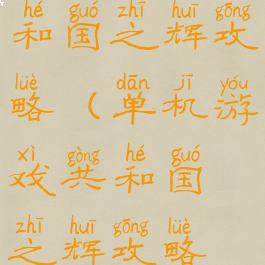 hé guó zhī huī gōng
和国之辉攻
lüè dān jī yóu
略(单机游
xì gòng hé guó
戏共和国
zhī huī gōng lüè
之辉攻略